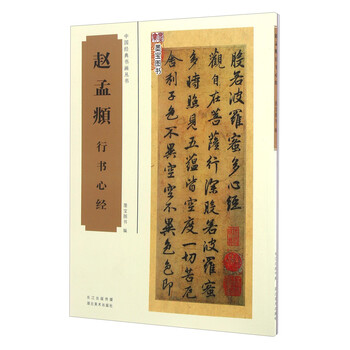 中国经典书画丛书
赵孟頫
行书心经
墨宝图书 编
长江出版传媒
湖北美术出版社
墨宝图书
般若波羅蜜多心經
觀自在菩薩行深般若波羅蜜
多時照見五蘊皆空度一切苦厄
舍利子色不異空空不異色色即